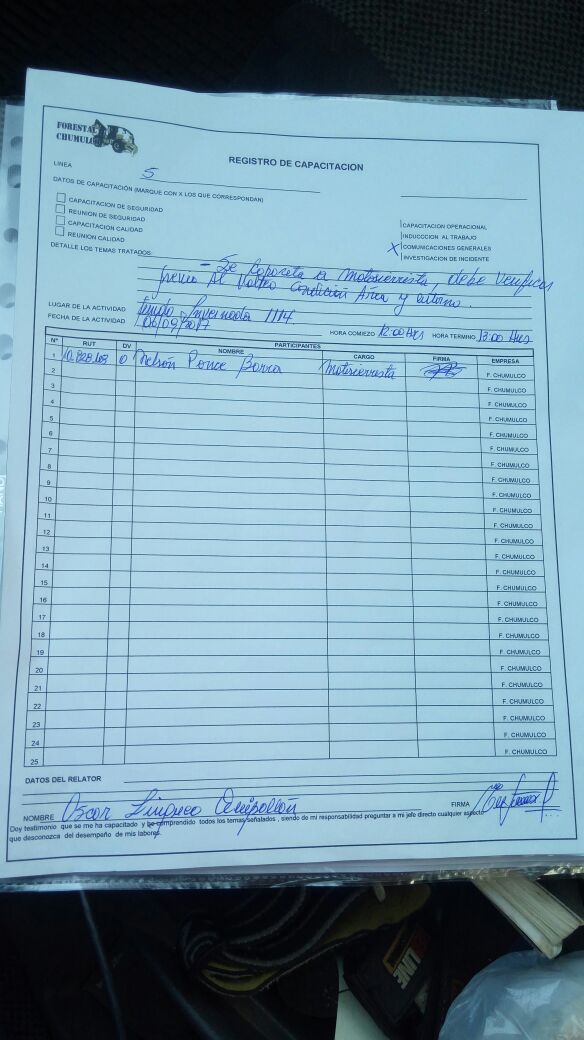 FORESTAL
CHUMULCO
REGISTRO DE CAPACITACION
LINEA 5
DATOS DE CAPACITACIÓN (MARQUE CON X LOS QUE CORRESPONDAN)
CAPACITACION DE SEGURIDAD
REUNION DE SEGURIDAD
CAPACITACION CALIDAD
REUNION CALIDAD
CAPACITACIÓN OPERACIONAL
INDUCCCION AL TRABAJO
X COMUNICACIONES GENERALES
INVESTIGACION DE INCIDENTE
DETALLE LOS TEMAS TRATADOS:
- Se Capacita a Motosierrista, debe Verificar
previo Al Volteo Condición Área y entorno.
LUGAR DE LA ACTIVIDAD Fundo Invernada 1114
FECHA DE LA ACTIVIDAD 06/09/2017 HORA COMIEZO 12:00 Hrs HORA TERMINO 13:00 Hrs
PARTICIPANTES
N° RUT DV NOMBRE CARGO FIRMA EMPRESA
1 10.828.168 0 Nelson Ponce Motosierrista F. CHUMULCO
2 F. CHUMULCO
3 F. CHUMULCO
4 F. CHUMULCO
5 F. CHUMULCO
6 F. CHUMULCO
7 F. CHUMULCO
8 F. CHUMULCO
9 F. CHUMULCO
10 F. CHUMULCO
11 F. CHUMULCO
12 F. CHUMULCO
13 F. CHUMULCO
14 F. CHUMULCO
15 F. CHUMULCO
16 F. CHUMULCO
17 F. CHUMULCO
18 F. CHUMULCO
19 F. CHUMULCO
20 F. CHUMULCO
21 F. CHUMULCO
22 F. CHUMULCO
23 F. CHUMULCO
24 F. CHUMULCO
25 F. CHUMULCO
DATOS DEL RELATOR
NOMBRE Oscar FIRMA
Doy testimonio que se me ha capacitado y he comprendido todos los temas señalados , siendo de mi responsabilidad preguntar a mi jefe directo cualquier aspecto
que desconozca del desempeño de mis labores.
LINE